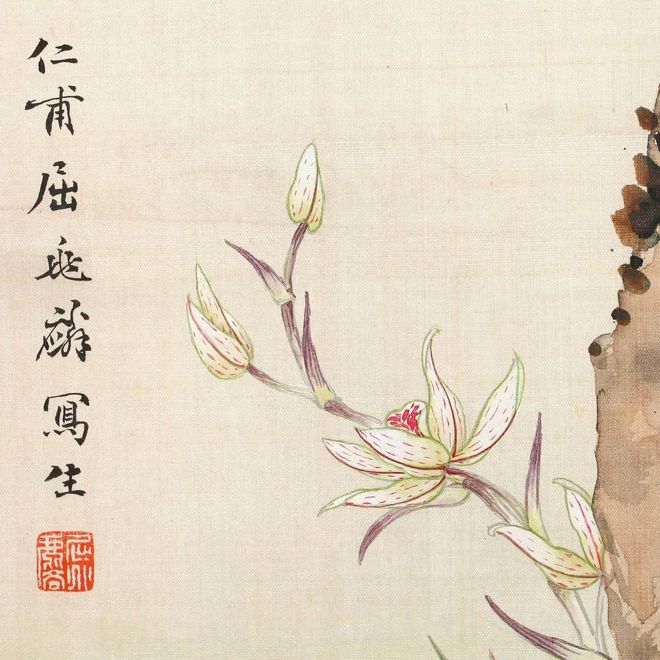 仁甫屈兆麟寫生